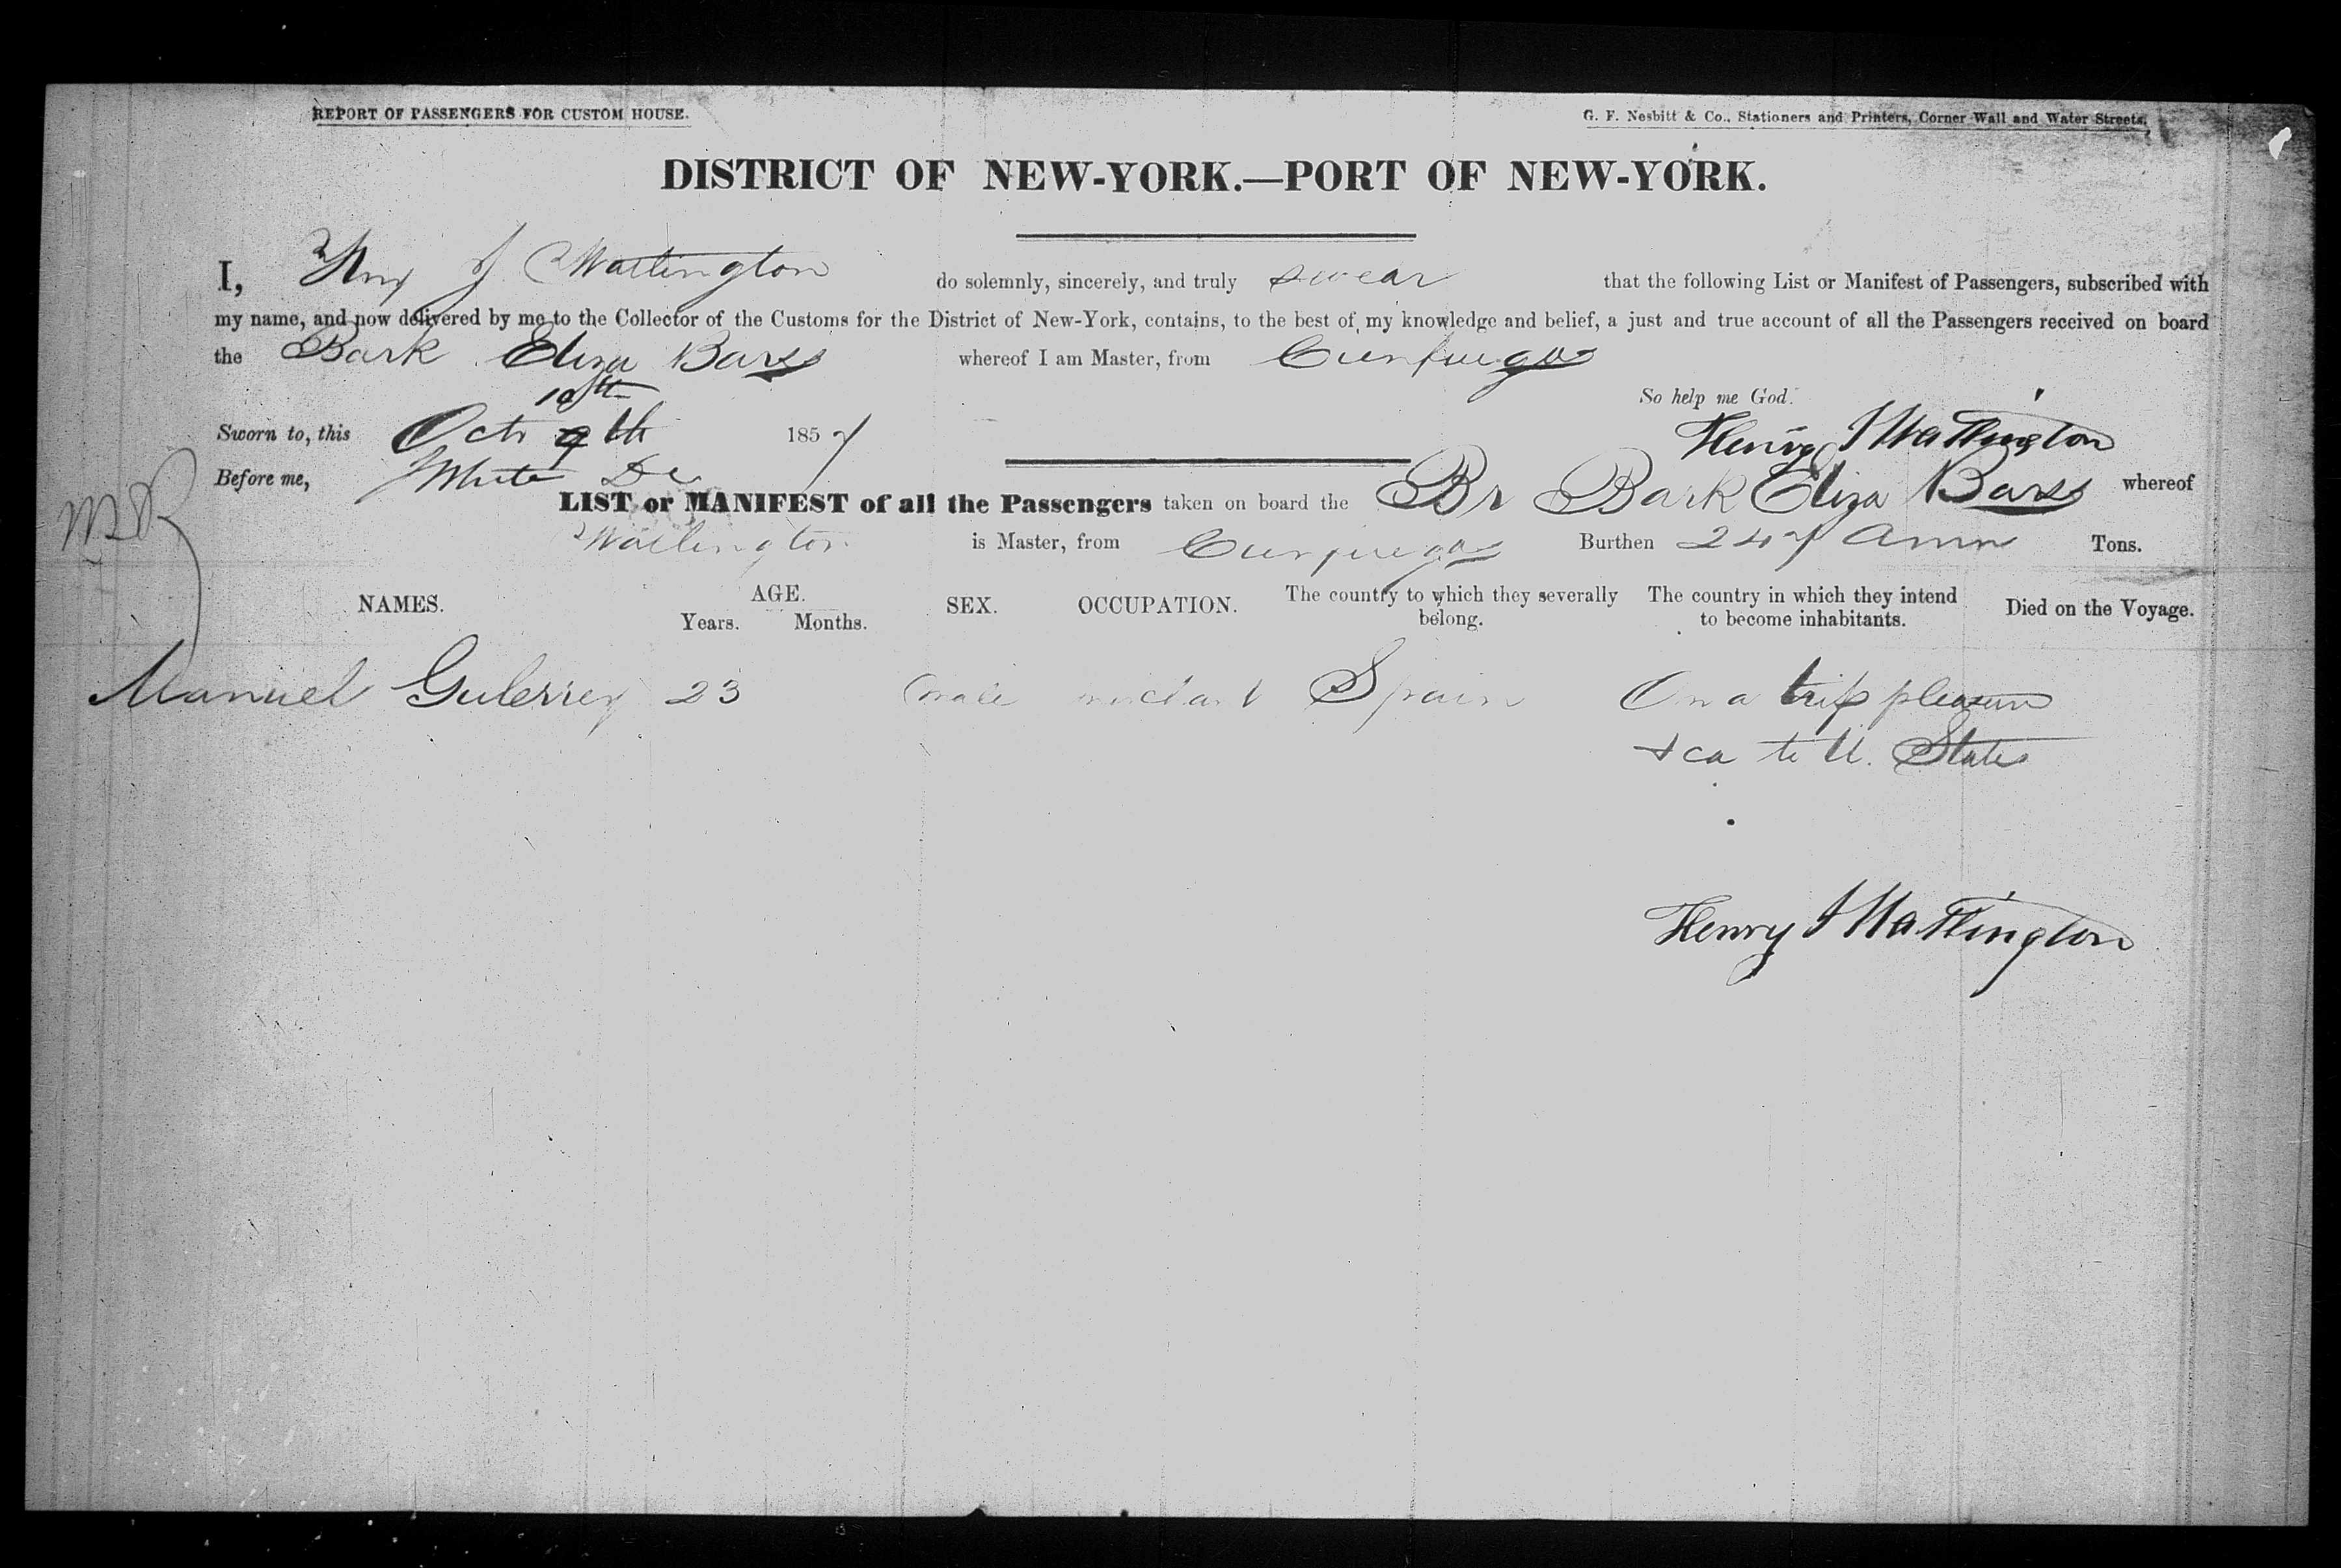 REPORT OF PASSENGERS FOR CUSTOM HOUSE.
G. F. Nesbitt & Co., Stationers and Printers, Corner Wall and Water Streets,
DISTRICT OF NEW-YORK.—PORT OF NEW-YORK.
I, Hny J Watlington do solemnly, sincerely, and truly swear that the following List or Manifest of Passengers, subscribed with
my name, and now delivered by me to the Collector of the Customs for the District of New-York, contains, to the best of my knowledge and belief, a just and true account of all the Passengers received on board
the Bark Eliza Barss whereof I am Master, from Cienfuegos
So help me God.
10th
Sworn to, this Octr 9th 1857 Henry J Watlington
Before me, White DC
LIST or MANIFEST of all the Passengers taken on board the Br Bark Eliza Barss whereof
Watlington is Master, from Cienfuegos Burthen 247 Tons.
NAMES. AGE. Years. Months. SEX. OCCUPATION. The country to which they severally belong. The country in which they intend to become inhabitants. Died on the Voyage.
Manuel 23 male Spain On a trip pleasure
&ca to U. States
Henry J Watlington